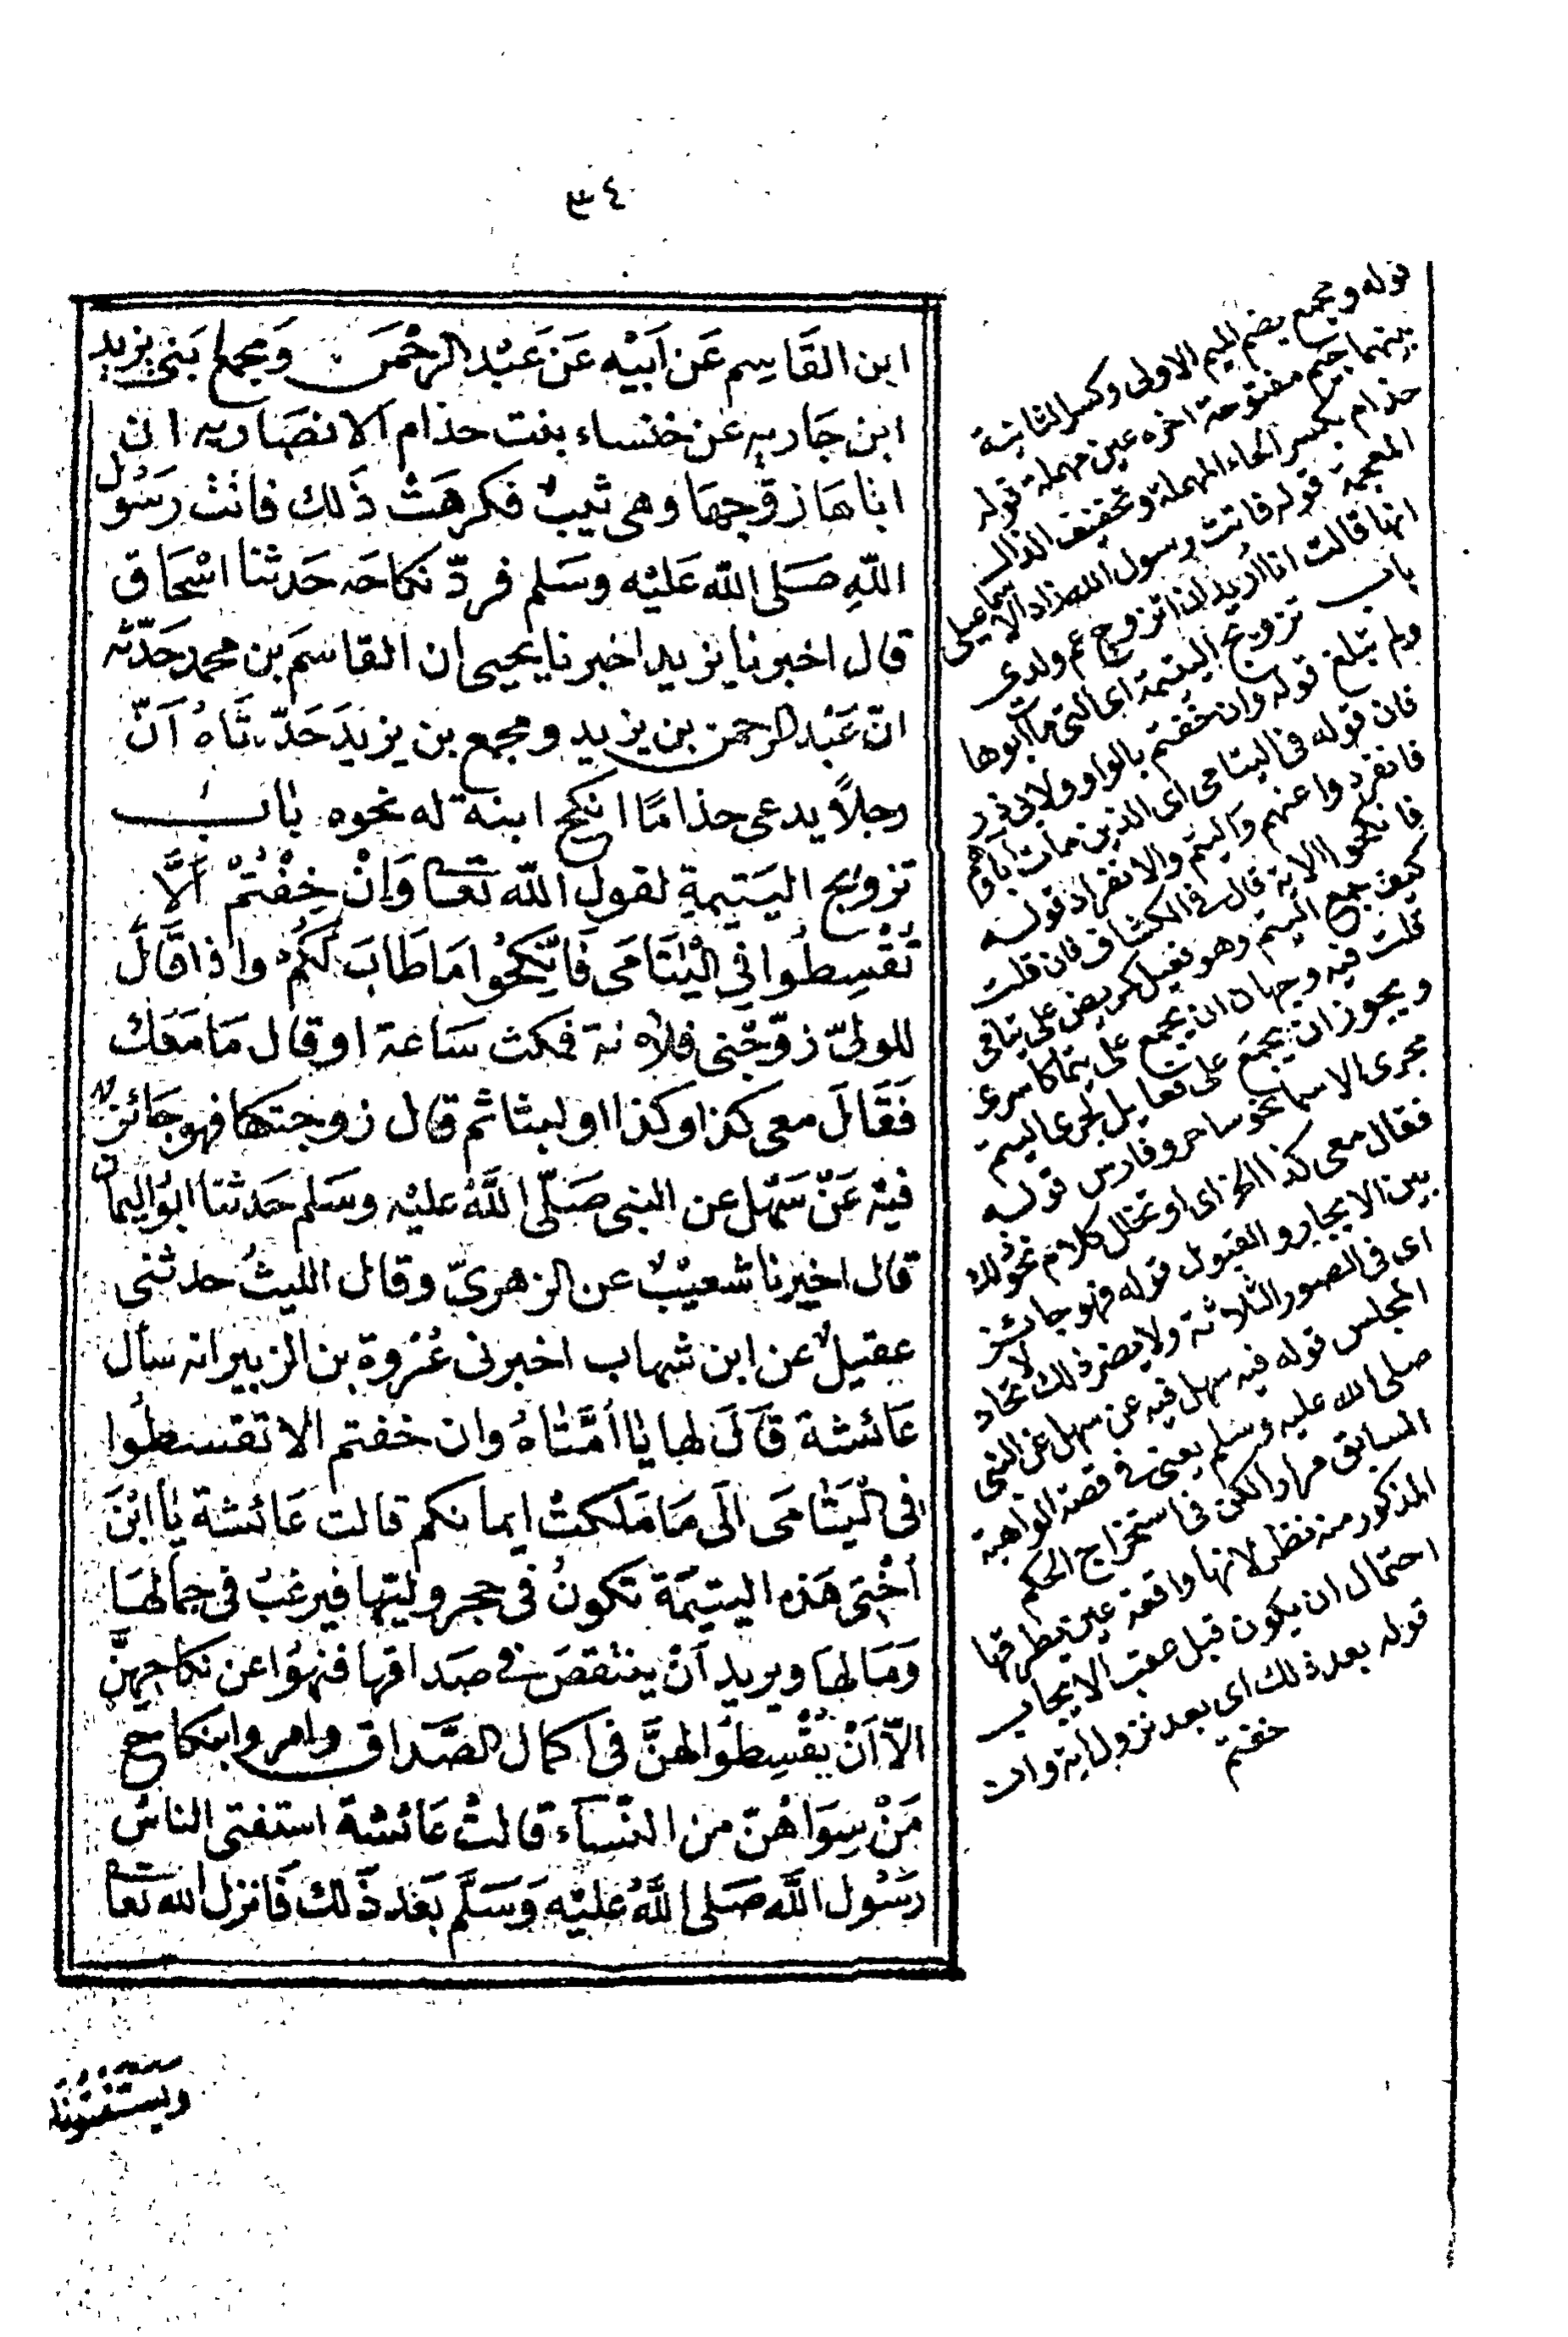 ٣٤
ابن القَاسِم عَن اَبيْه عَن عَبْد الرحْمَن وَمجمع بَنى يزيد
ابن جَاريه عَن خنساء بنت حذام الانصَاريه ان
اباهَا زوّجهَا وهى ثيبٌ فكرهَتْ ذَلك فاتَتْ رَسُول
اللهِ صَلى الله عَليْه وسَلم فردّ نكاحَه حَدثنا اسْحَاق
قال اخبرنا يزيد اخبرنا يحيى ان القاسَم بن محمد حَدّثه
انّ عَبْد الرحمن بن يزيد ومجمع بن يزيدَ حَدّثَاهُ اَنّ
رجلاً يدعى حذامًا انكح ابنة له نحوه بَاب
تزويج اليَتيمةِ لقول الله تعَا وَاِنْ خِفْتُمْ اَلَّا
تُقْسِطُوا فِي الْيَتَامَى فَانْكِحُوا مَا طَابَ لَكُمْ واذا قَالَ
للولىّ زوّجْنى فلاَنة فمكث سَاعة او قال مَا مَعَك
فَقَالَ معى كذا وكذا او لبثا ثم قال زوجتكها فهو جَائزٌ
فيْه عَنْ سَهْل عن النبى صَلّى اللَّهُ عليْه وسَلم حَدثنا ابوُ اليمان
قال اخبرنا شعيْبٌ عن الزهرىّ وقال الليثُ حدثنى
عقيلٌ عن ابن شهاب اخبرنى عُرْوة بن الزبير انه سأل
عَائشة قَالَ لها يَا اُمَّتَاهُ وان خفتم الا تقسطُوا
فى الْيَتَامَى اِلَى مَا مَلَكتْ ايمانكم قالت عَائشة يَا ابْنَ
اُخْتِى هَذه اليتيمَة تكونُ فى حجر وليّها فيرغبُ فى جمالهَا
وَمَالهَا ويريد اَنْ ينتقصَ فى صَداقها فنُهوُا عن نكاحهِنَّ
الاّ اَنْ يُقْسِطوُا لهنَّ فى اكمال الصَّداق وامروا بنكاح
مَنْ سِوَاهُنّ من النّسَاَء قالتْ عَائشة استفتى الناسُ
رسُول اللَّه صَلى اللَّهُ عليْه وَسَلَّم بَعْد ذَلكَ فَانزل الله تعَا
ويستفتونك
قوله ومجمع بضم الميم الاولى وكسر الثانية
بينهما جيم مفتوحة اخره عين مهملة قوله
حذام بكسر الخاء المهملة وتخفيف الذال
المعجمة قوله فاتت رسول الله زاد الاسماعيلى
انها قالت انا اريد ان اتزوج عم ولدى
باب تزويج اليتيمة اى التى مات ابوها
ولم تبلغ قوله وان خفتم بالواو ولابى ذر
فان قوله فى اليتامى اى الذين مات اباؤهم
فانفردوا عنهم واليتم والانفراد قوله
فانكحوا الاية قال فى الكشاف فان قلت
كيف جمع اليتيم وهو فعيل كمريض على يتامى
قلت فيه وجهان ان يجمع على يتمى كاسرى
ويجوز ان يجمع على فعايل لجرى اليتيم
مجرى الاسما نحو صاحب وفارس قوله
فقال معى كذا الخ اى او تخلل كلام نحو ذلك
بين الايجاب والقبول قوله فهو جائز
اى فى الصور الثلاثة ولا يضر ذلك لاتحاد
المجلس قوله فيه سهل فيه عن سهل عن النبى
صلى الله عليه وسلم يعنى فى قصة الواهبة
السابق مرارا لكن فى استخراج الحكم
المذكور منه نظر لانها واقعة عين يطرقها
احتمال ان يكون قبل عقب الايجاب
قوله بعد ذلك اى بعد نزول اية وان
خفتم